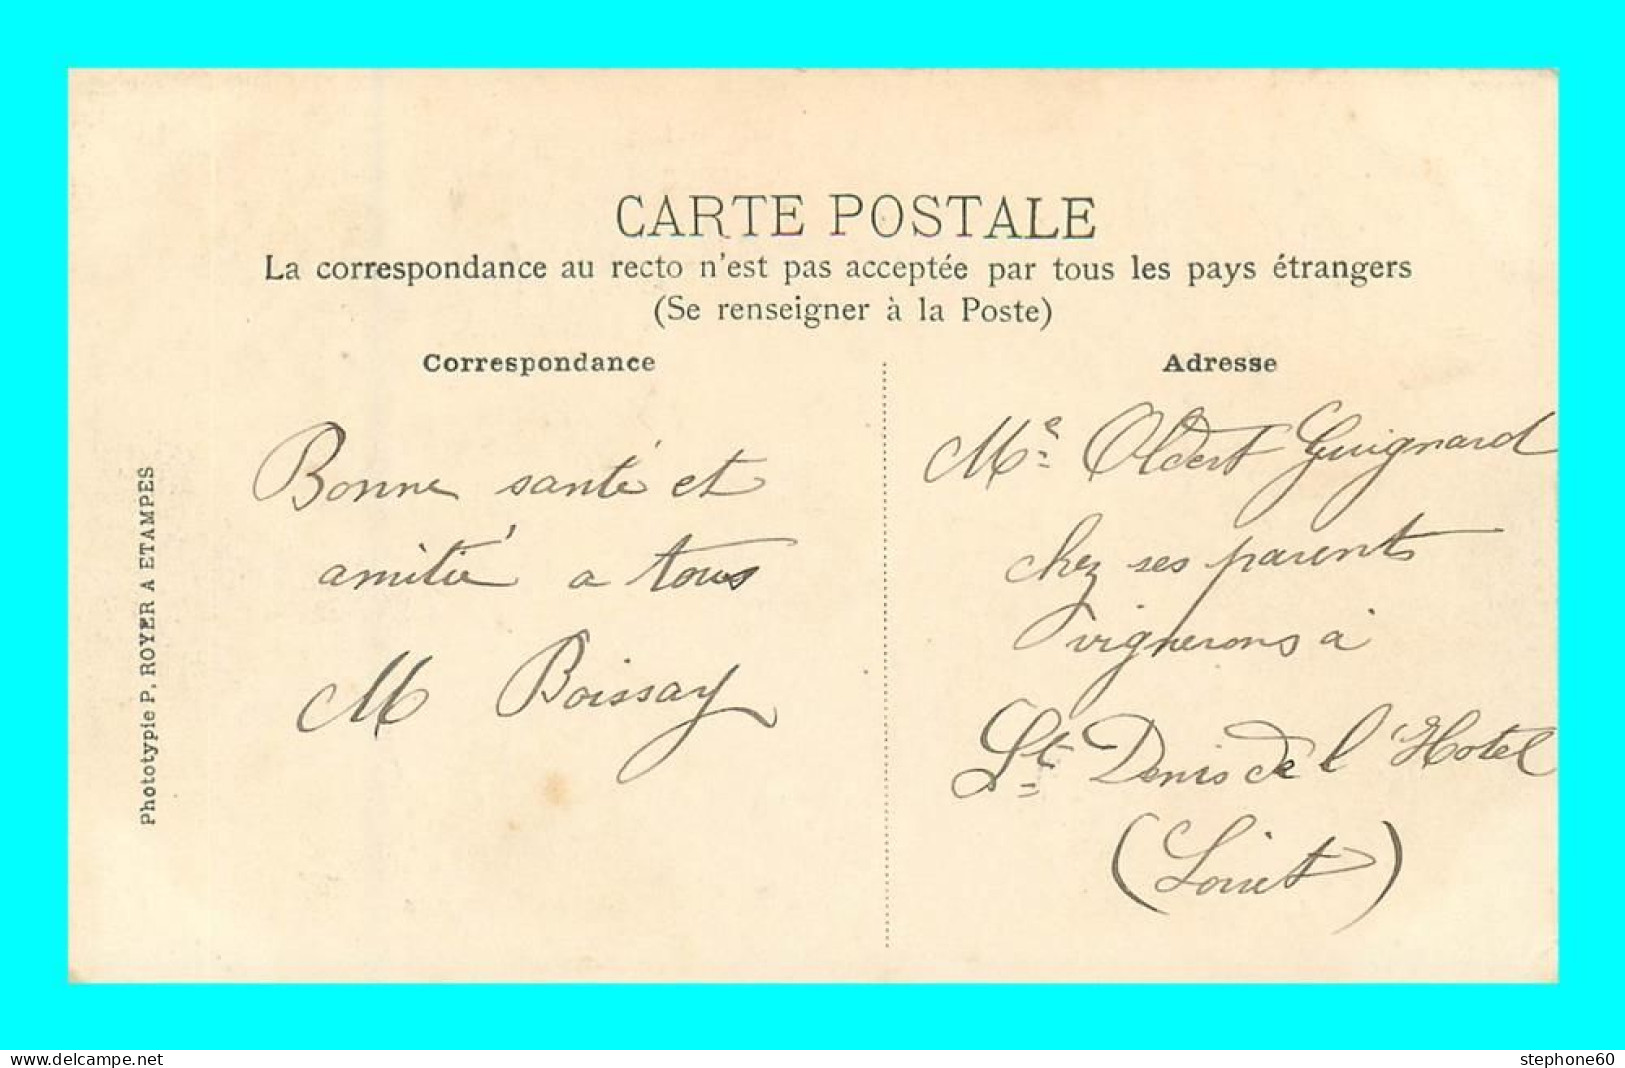 CARTE POSTALE
La correspondance au recto n'est pas acceptée par tous les pays étrangers
(Se renseigner à la Poste)
Correspondance
Bonne santé et
amitié a tous
M Boissay
Adresse
Me Guignard
chez ses parents
vignerons à
St Denis de l'Hotel
(Loiret)
Phototypie P. ROYER A ETAMPES
www.delcampe.net
stephone60